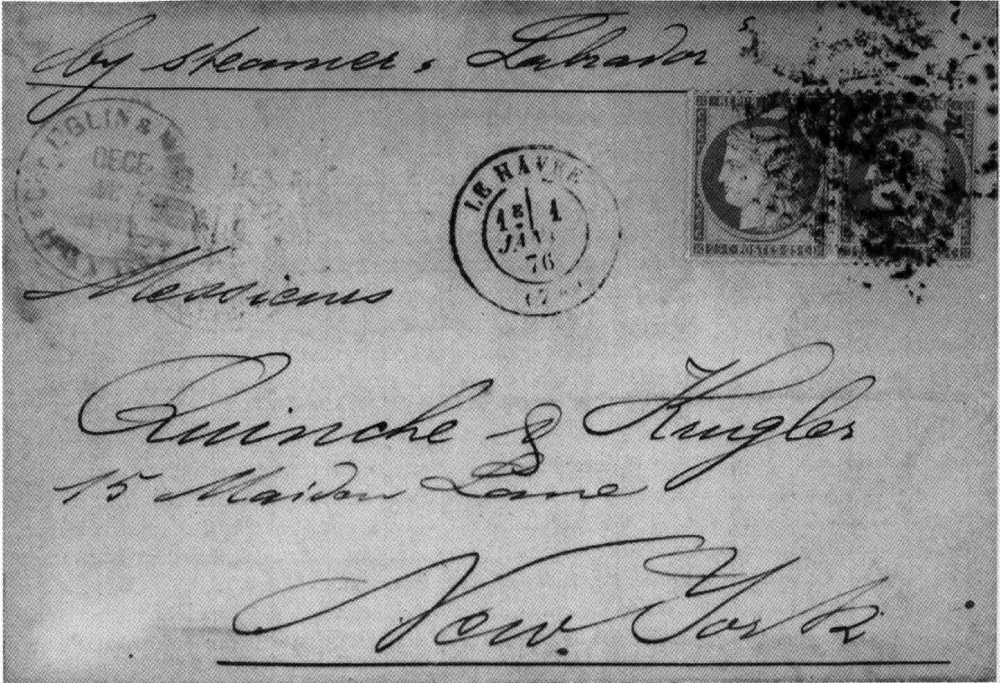 by steamer, Labrador
LE HAVRE
1E 1
JANV
76
DECE
Messieurs
Quinche & Krugler
15 Maiden Lane
New. York